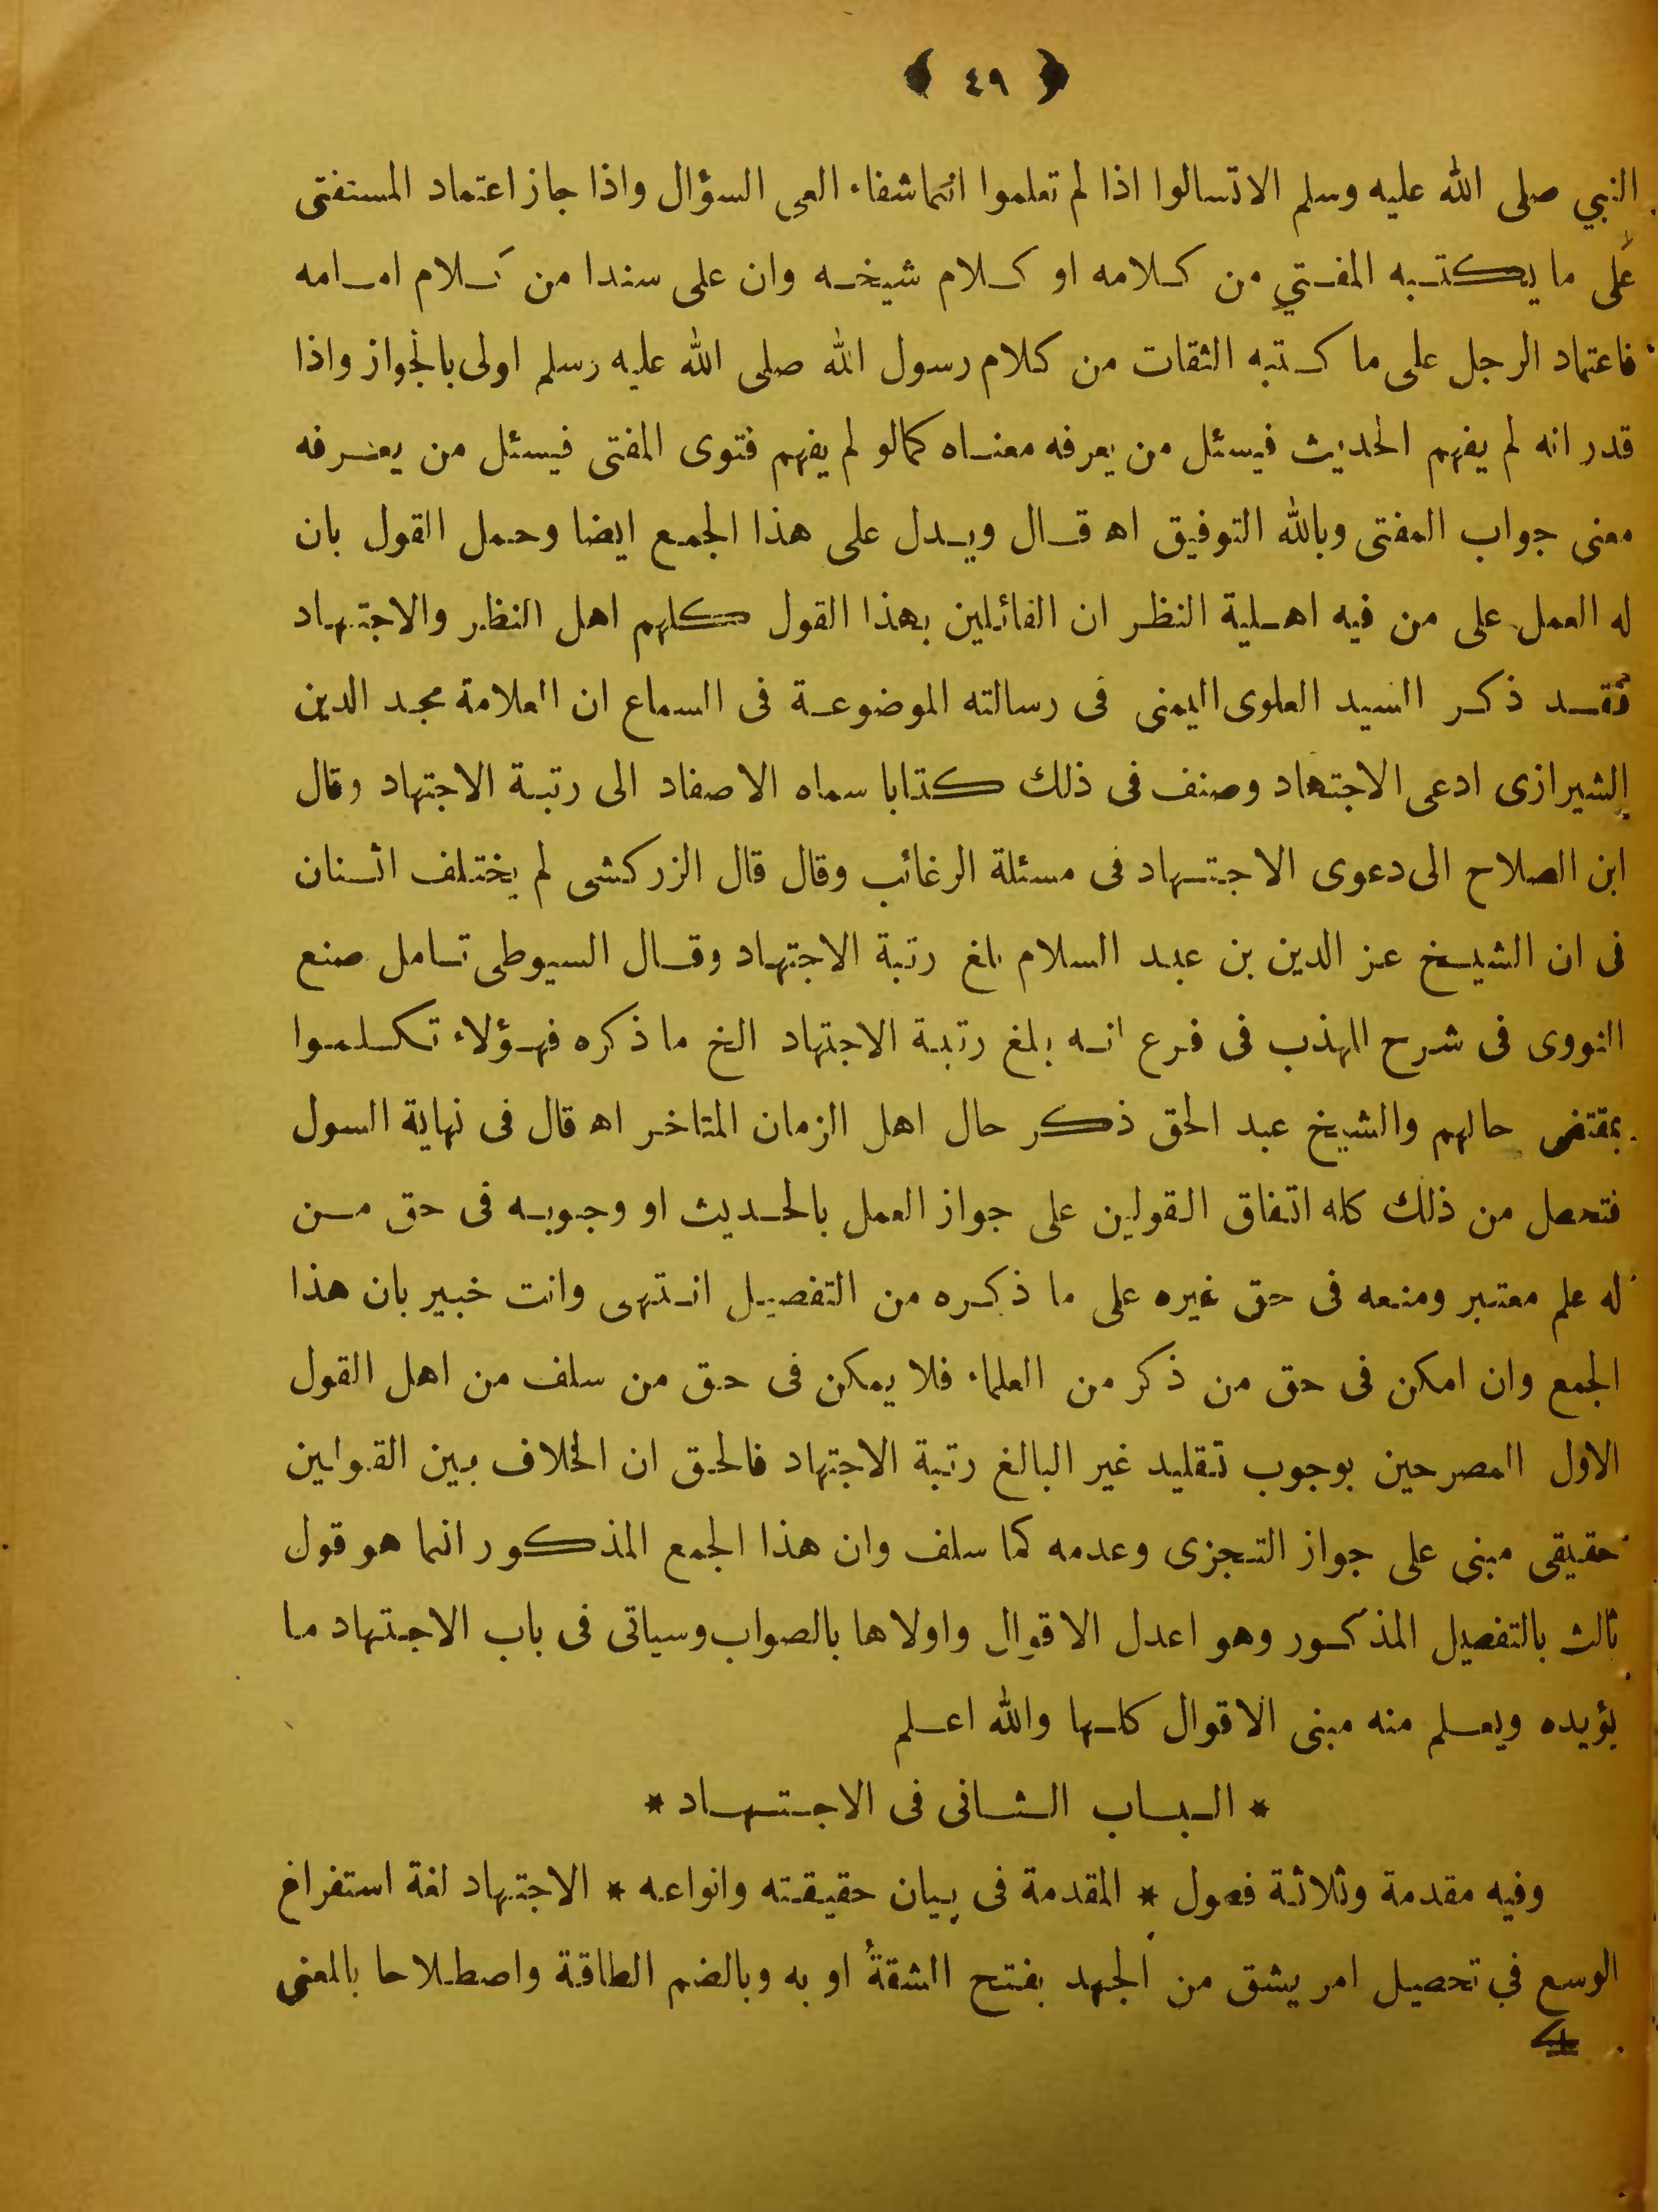 ﴿ ٤٩ ﴾
النبي صلى الله عليه وسلم الاتسالوا اذا لم تعلموا انما شفاء العى السؤال واذا جاز اعتماد المستفتى
على ما يكتبه المفتي من كلامه او كلام شيخه وان على سندا من كلام امامه
فاعتماد الرجل على ما كتبه الثقات من كلام رسول الله صلى الله عليه وسلم اولى بالجواز واذا
قدر انه لم يفهم الحديث فيسئل من يعرفه معناه كمالو لم يفهم فتوى المفتى فيسئل من يعرفه
معنى جواب المفتى وبالله التوفيق اه قال ويدل على هذا الجمع ايضا وحمل القول بان
له العمل على من فيه اهلية النظر ان القائلين بهذا القول كلهم اهل النظر والاجتهاد
فقد ذكر السيد العلوى اليمنى فى رسالته الموضوعة فى السماع ان العلامة مجد الدين
الشيرازى ادعى الاجتهاد وصنف فى ذلك كتابا سماه الاصفاد الى رتبة الاجتهاد وقال
ابن الصلاح الى دعوى الاجتهاد فى مسئلة الرغائب وقال قال الزركشى لم يختلف اثنان
فى ان الشيخ عز الدين بن عبد السلام بلغ رتبة الاجتهاد وقال السيوطى تامل صنع
النووى فى شرح المهذب فى فرع انه بلغ رتبة الاجتهاد الخ ما ذكره فهؤلاء تكلموا
بمقتضى حالهم والشيخ عبد الحق ذكر حال اهل الزمان المتاخر اه قال فى نهاية السول
فتحصل من ذلك كله اتفاق القولين على جواز العمل بالحديث او وجوبه فى حق من
له علم معتبر ومنعه فى حق غيره على ما ذكره من التفصيل انتهى وانت خبير بان هذا
الجمع وان امكن فى حق من ذكر من العلماء فلا يمكن فى حق من سلف من اهل القول
الاول المصرحين بوجوب تقليد غير البالغ رتبة الاجتهاد فالحق ان الخلاف بين القولين
حقيقى مبنى على جواز التجزى وعدمه كما سلف وان هذا الجمع المذكور انما هو قول
ثالث بالتفصيل المذكور وهو اعدل الاقوال واولاها بالصواب وسياتى فى باب الاجتهاد ما
يؤيده ويعلم منه مبنى الاقوال كلها والله اعلم
* الباب الثانى فى الاجتهاد *
وفيه مقدمة وثلاثة فصول * المقدمة فى بيان حقيقته وانواعه * الاجتهاد لغة استفراغ
الوسع في تحصيل امر يشق من الجهد بفتح الشقة او به وبالضم الطاقة واصطلاحا بالمعنى